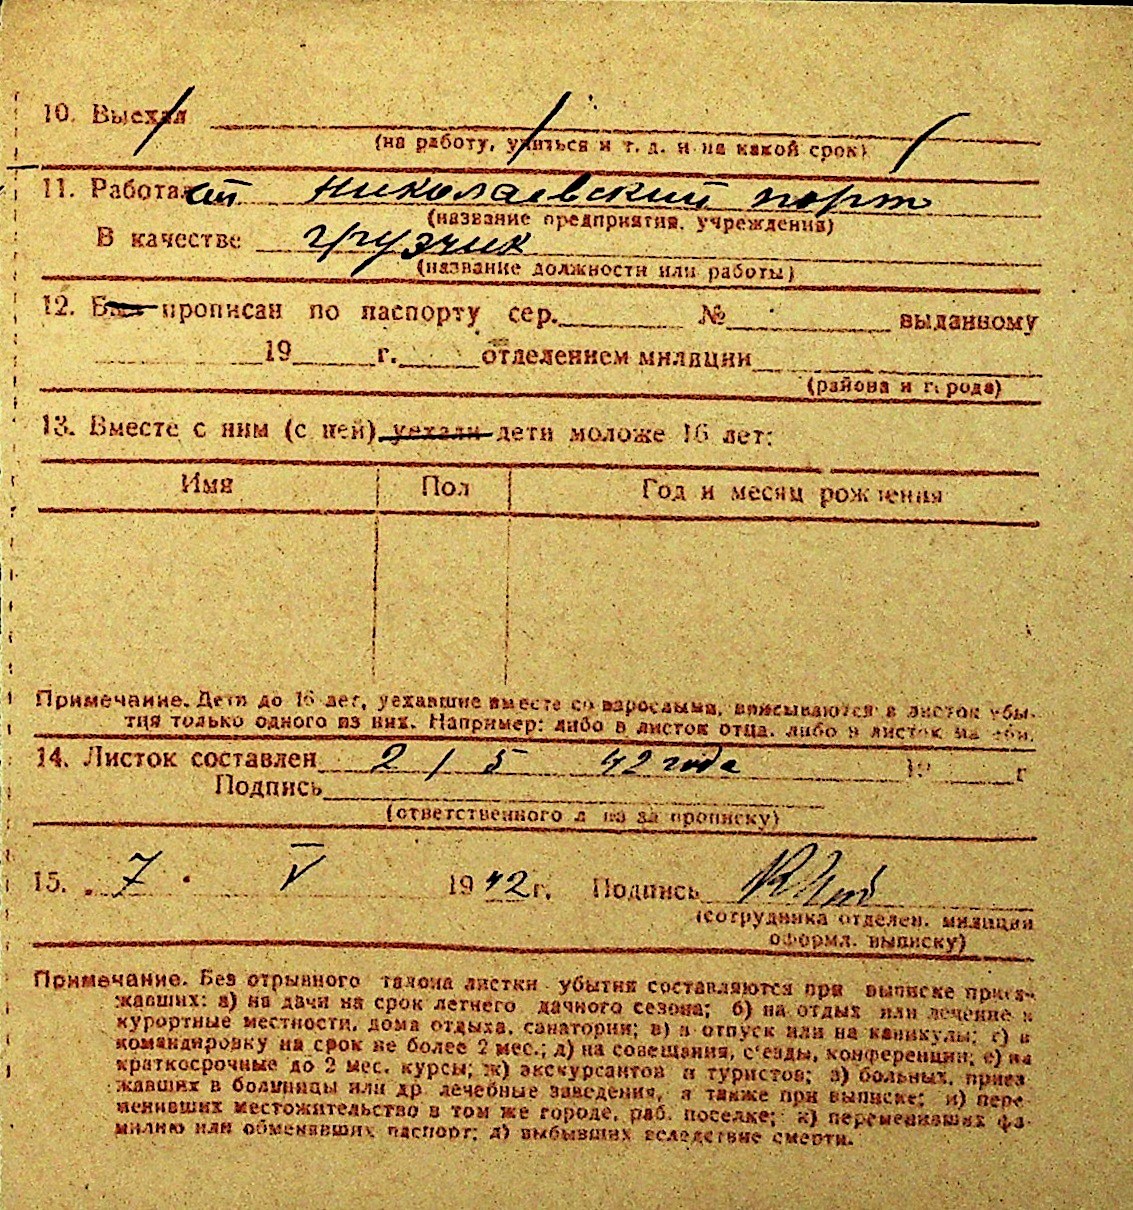 10. Выехал
(на работу, учиться и т. д. и на какой срок)
11. Работает Николаевский порт
(название предприятия, учреждения)
В качестве грузчик
(название должности или работы)
12. Был прописан по паспорту сер. № выданному
19 г. отделением милиции
(района и города)
13. Вместе с ним (с ней) уехали дети моложе 16 лет:
Имя Пол Год и месяц рождения
Примечание. Дети до 16 лет, уехавшие вместе со взрослыми, вписываются в листок убы-
тия только одного из них. Например: либо в листок отца, либо в листок матери.
14. Листок составлен 2 / 5 42 года 19 г
Подпись
(ответственного лица за прописку)
15. 7 V 1942 г. Подпись
(сотрудника отделен. милиции
оформл. выписку)
Примечание. Без отрывного талона листки убытия составляются при выписке приез-
жавших: а) на дачи на срок летнего дачного сезона; б) на отдых или лечение в
курортные местности, дома отдыха, санатории; в) в отпуск или на каникулы; г) в
командировку на срок не более 2 мес.; д) на совещания, с'езды, конференции; е) на
краткосрочные до 2 мес. курсы; ж) экскурсантов и туристов; з) больных, приез-
жавших в больницы или др лечебные заведения, а также при выписке; и) пере-
менивших местожительство в том же городе, раб. поселке; к) переменивших фа-
милию или обменявших паспорт; л) выбывших вследствие смерти.